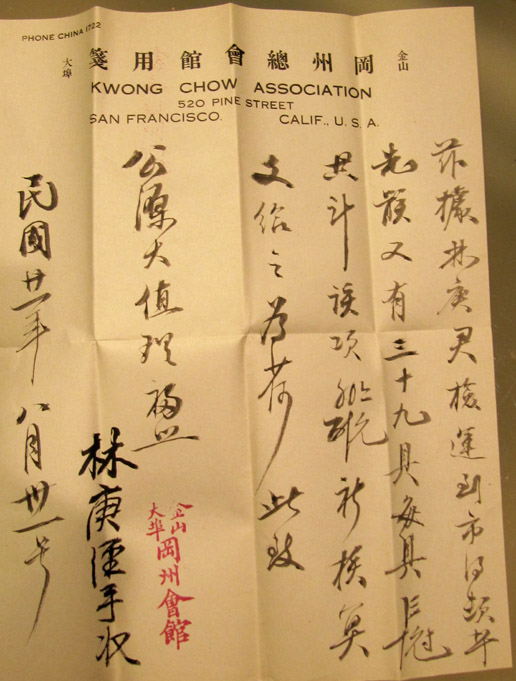 PHONE CHINA 1722
金山
大埠
岡州總會館用箋
KWONG CHOW ASSOCIATION
520 PINE STREET
SAN FRANCISCO. CALIF., U. S. A.
茲據林庚君檢運到市
先骸又有三十九具每具
共計該項 祈核算
支給之為荷 此致
公源大值理
林庚 手收
金山
大埠
岡州會館
民國廿一年八月卅一号